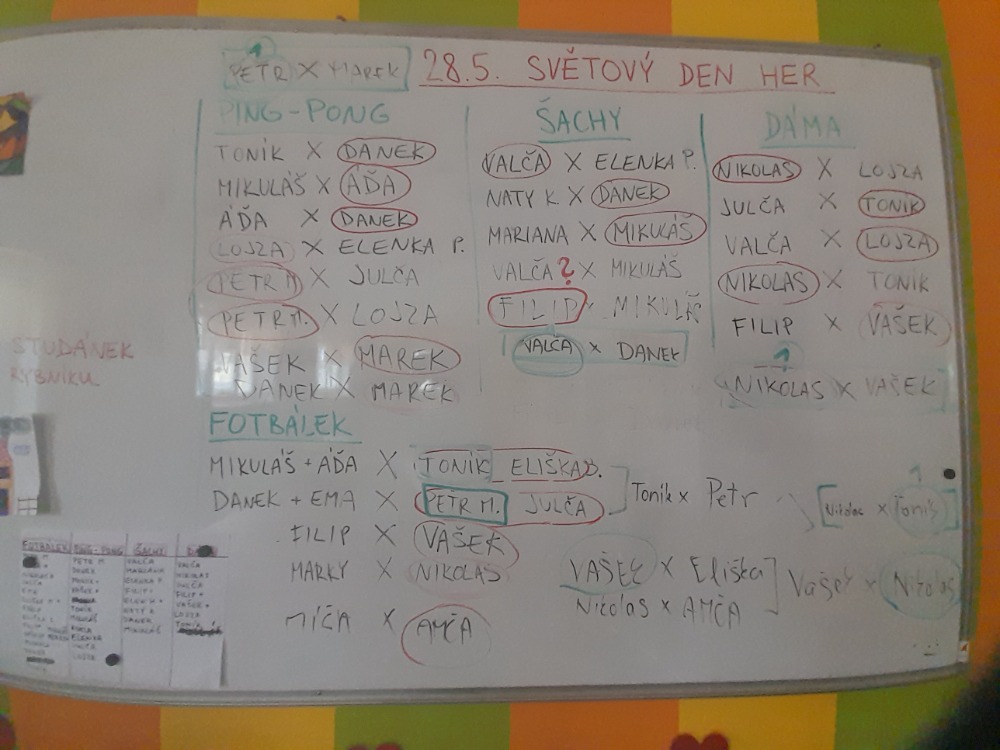 1
PETR X MAREK
28.5. SVĚTOVÝ DEN HER
PING-PONG
TONÍK X DANEK
MIKULÁŠ X ÁĎA
ÁĎA X DANEK
LOJZA X ELENKA P.
PETR M X JULČA
PETR M. X LOJZA
VAŠEK X MAREK
DANEK X MAREK
ŠACHY
VALČA X ELENKA P.
NATY K X DANEK
MARIANA X MIKULÁŠ
VALČA? X MIKULÁŠ
FILIP X MIKULÁŠ
VALČA X DANEK
DÁMA
NIKOLAS X LOJZA
JULČA X TONÍK
VALČA X LOJZA
NIKOLAS X TONÍK
FILIP X VAŠEK
1
NIKOLAS X VAŠEK
STUDÁNEK
RYBNÍKU
FOTBÁLEK
MIKULÁŠ + ÁĎA X TONÍK ELIŠKA B.
DANEK + EMA X PETR M. JULČA
FILIP X VAŠEK
MARKY X NIKOLAS
MÍČA X AMČA
Toník x Petr
1
Nikolas x Toník
VAŠEK X Eliška
Nikolas x AMČA
Vašek x Nikolas
FOTBÁLEK PING-PONG ŠACHY